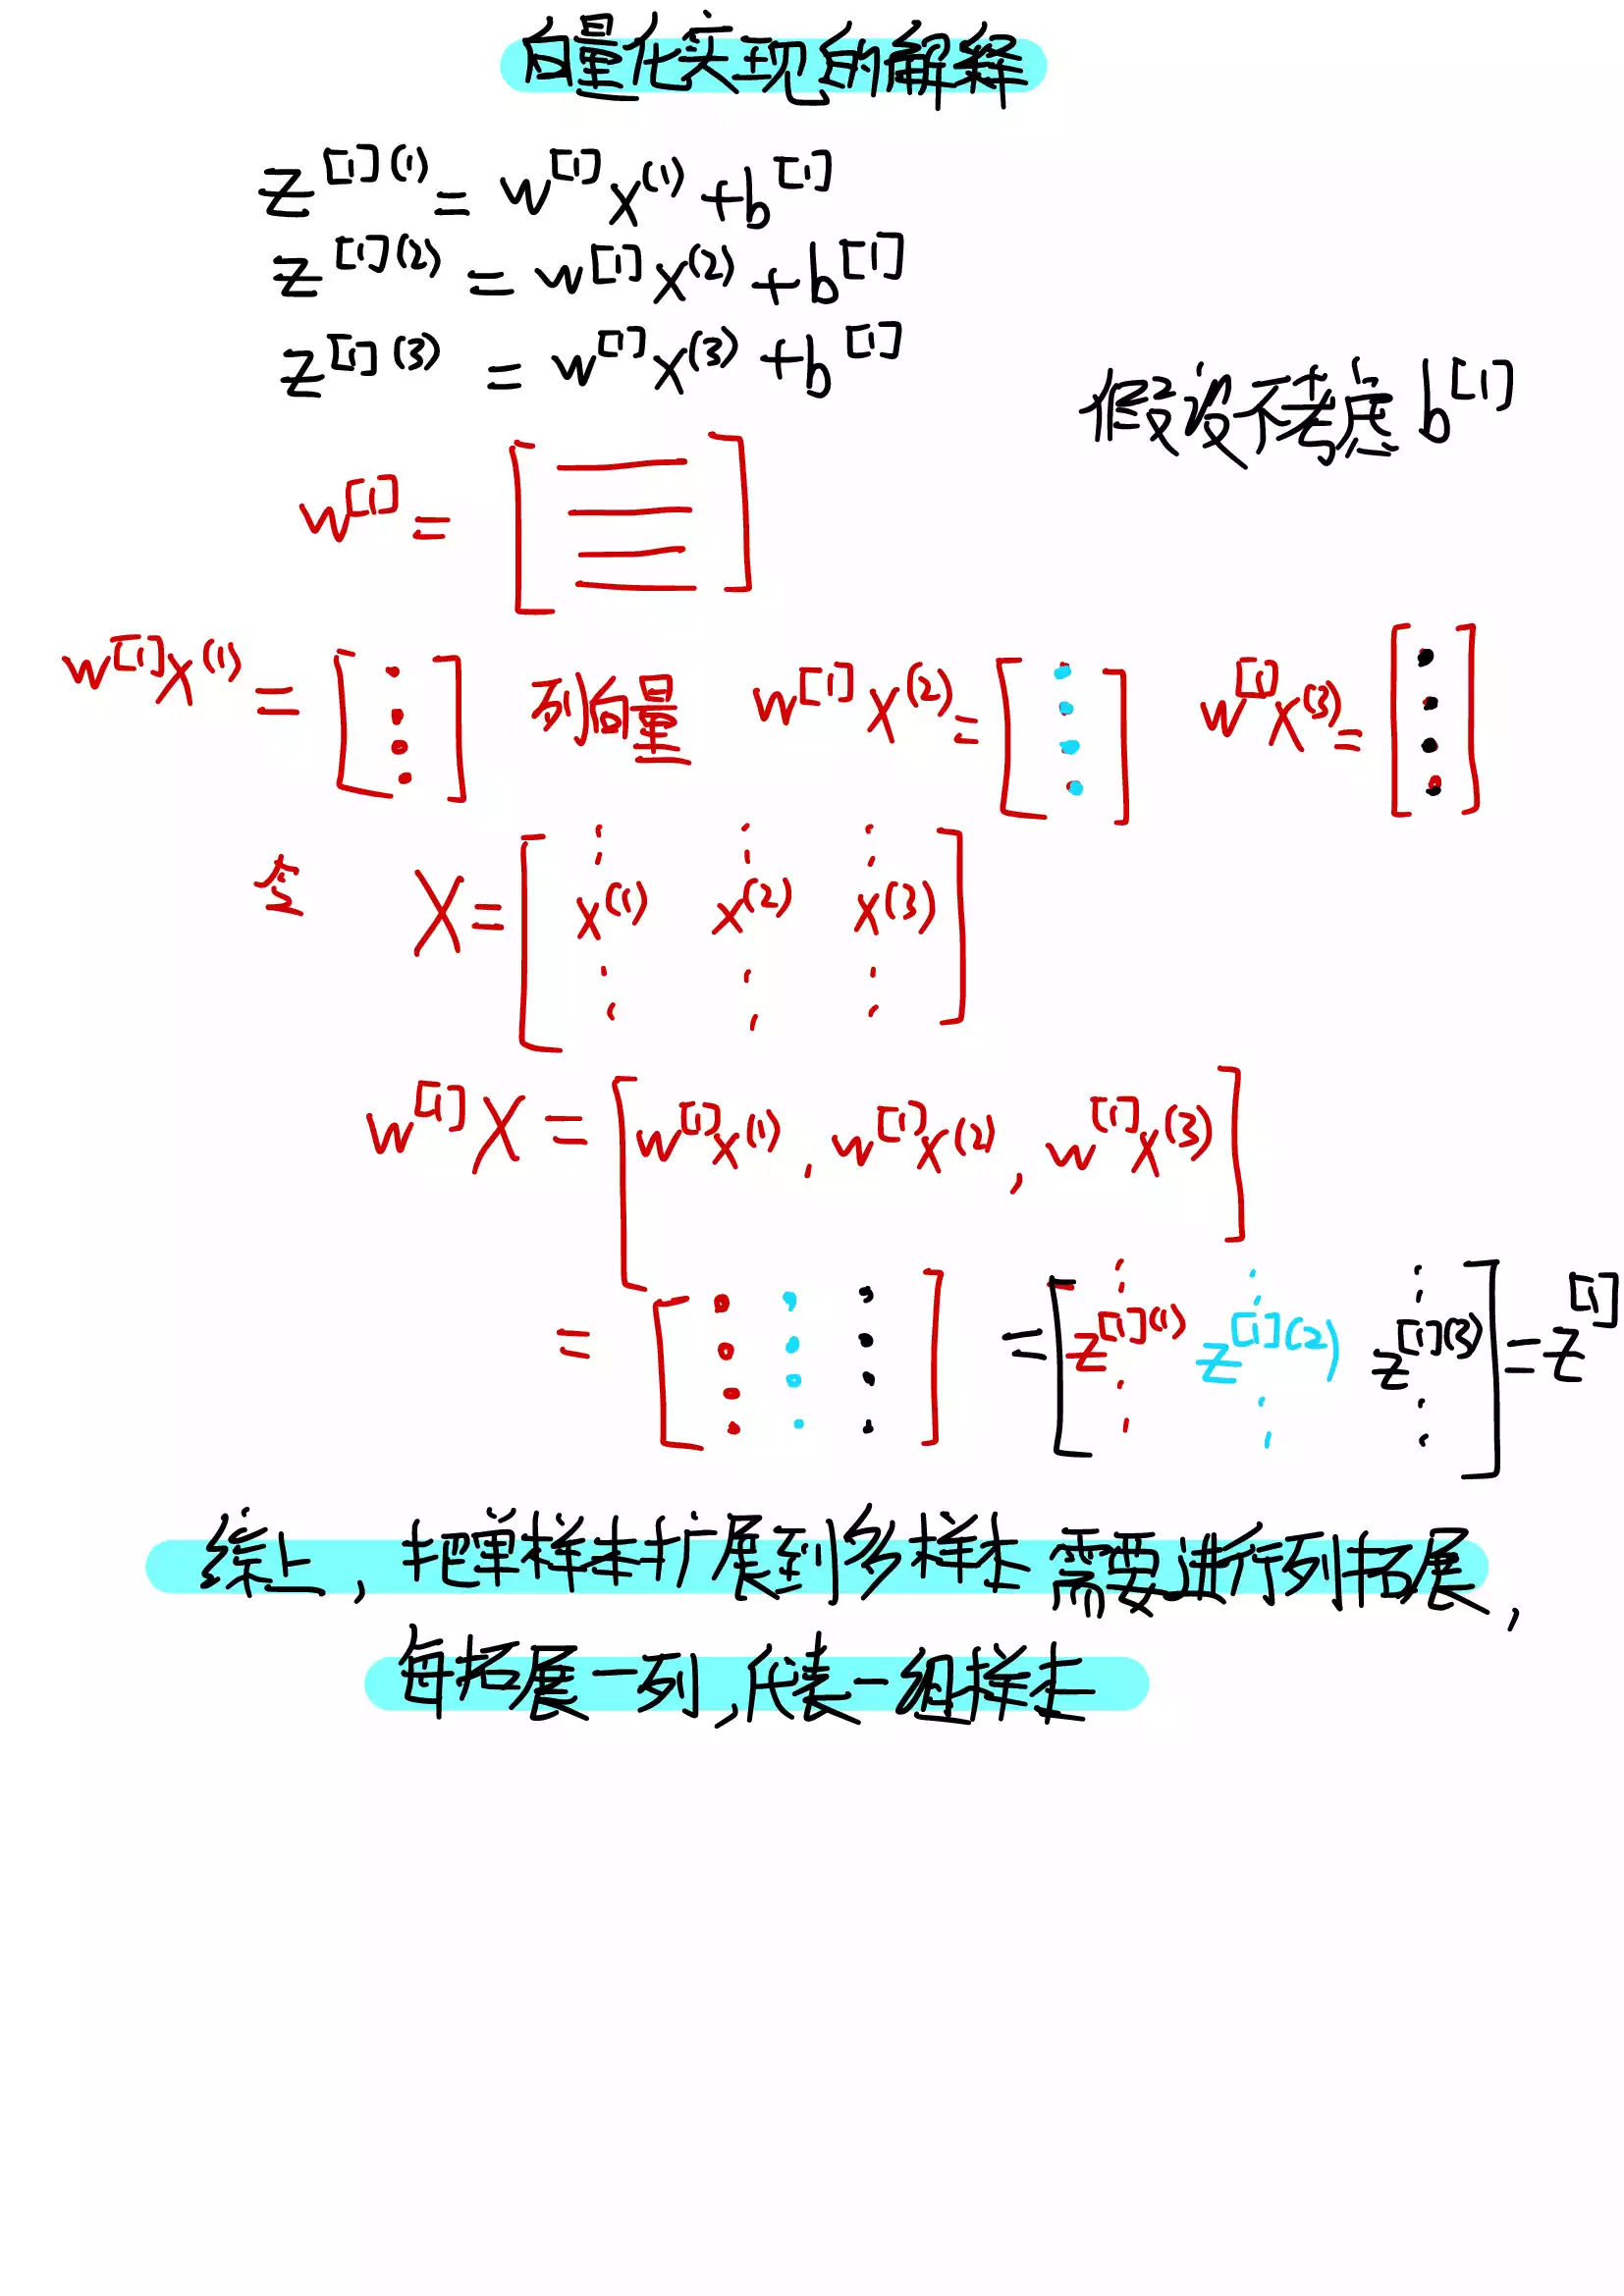 向量化实现的解释
z^[1](1) = w^[1]x^(1) + b^[1]
z^[1](2) = w^[1]x^(2) + b^[1]
z^[1](3) = w^[1]x^(3) + b^[1]
假设不考虑 b^[1]
w^[1] = [ ]
w^[1]x^(1) = [ ] 列向量 w^[1]x^(2) = [ ] w^[1]x^(3) = [ ]
令 X = [ x^(1) x^(2) x^(3) ]
w^[1]X = [ w^[1]x^(1), w^[1]x^(2), w^[1]x^(3) ]
= [ ] = [ z^[1](1) z^[1](2) z^[1](3) ] = z^[1]
综上, 把单样本扩展到多样本需要进行列拓展,
每拓展一列, 代表一组样本